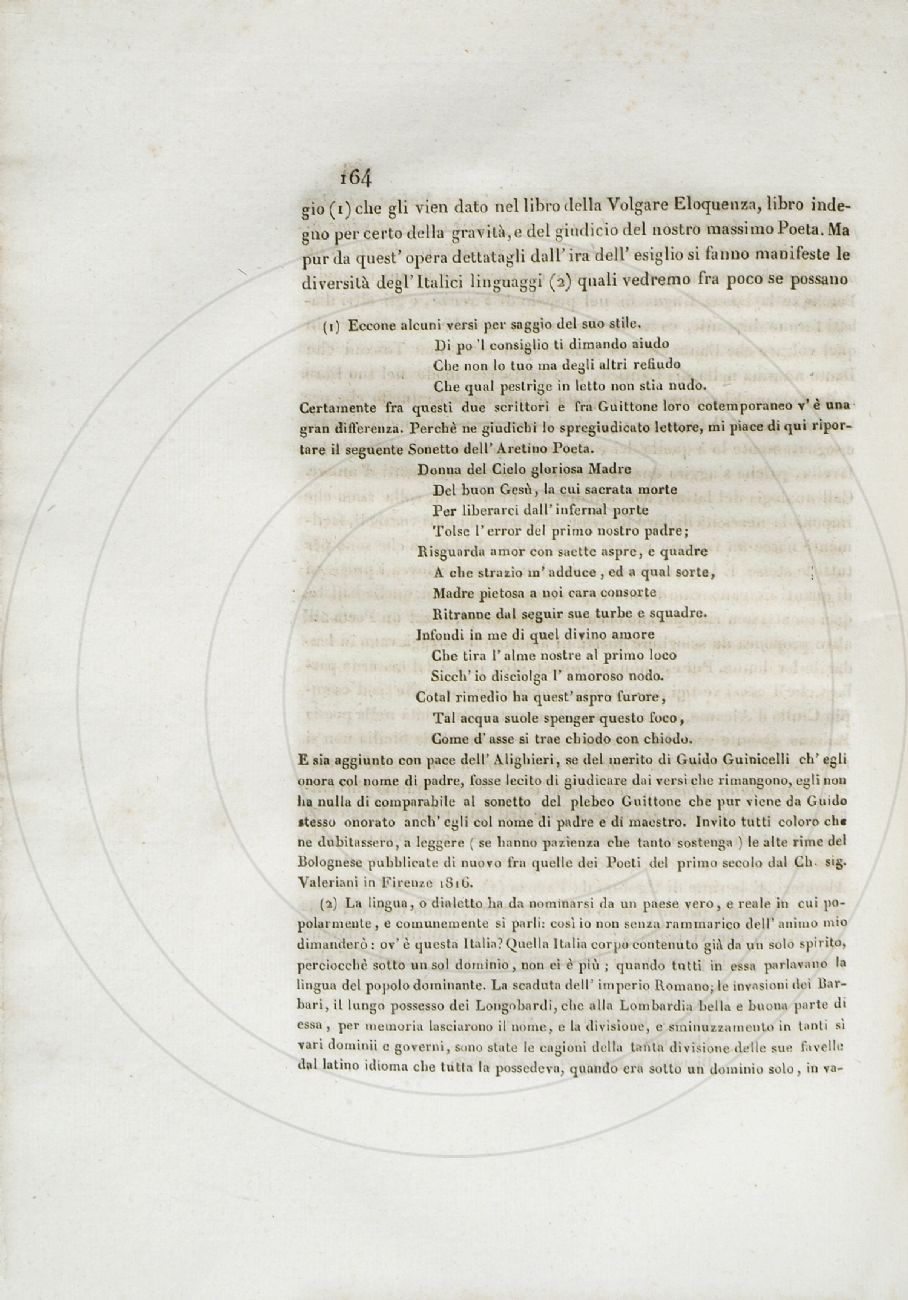 164
gio (1) che gli vien dato nel libro della Volgare Eloquenza, libro inde-
gno per certo della gravità, e del giudicio del nostro massimo Poeta. Ma
pur da quest' opera dettatagli dall' ira dell' esiglio si fanno manifeste le
diversità degl' Italici linguaggi (2) quali vedremo fra poco se possano
(1) Eccone alcuni versi per saggio del suo stile.
Di po 'l consiglio ti dimando aiudo
Che non lo tuo ma degli altri refiudo
Che qual pestrige in letto non stia nudo.
Certamente fra questi due scrittori e fra Guittone loro cotemporaneo v' è una
gran differenza. Perchè ne giudichi lo spregiudicato lettore, mi piace di qui ripor-
tare il seguente Sonetto dell' Aretino Poeta.
Donna del Cielo gloriosa Madre
Del buon Gesù, la cui sacrata morte
Per liberarci dall' infernal porte
Tolse l' error del primo nostro padre;
Risguarda amor con saette aspre, e quadre
A che strazio m' adduce, ed a qual sorte,
Madre pietosa a noi cara consorte
Ritranne dal seguir sue turbe e squadre.
Infondi in me di quel divino amore
Che tira l' alme nostre al primo loco
Sicch' io disciolga l' amoroso nodo.
Cotal rimedio ha quest' aspro furore,
Tal acqua suole spenger questo foco,
Come d' asse si trae chiodo con chiodo.
E sia aggiunto con pace dell' Alighieri, se del merito di Guido Guinicelli ch' egli
onora col nome di padre, fosse lecito di giudicare dai versi che rimangono, egli non
ha nulla di comparabile al sonetto del plebeo Guittone che pur viene da Guido
stesso onorato anch' egli col nome di padre e di maestro. Invito tutti coloro che
ne dubitassero, a leggere ( se hanno pazienza che tanto sostenga ) le alte rime del
Bolognese pubblicate di nuovo fra quelle dei Poeti del primo secolo dal Ch. sig.
Valeriani in Firenze 1816.
(2) La lingua, o dialetto ha da nominarsi da un paese vero, e reale in cui po-
polarmente, e comunemente si parli: così io non senza rammarico dell' animo mio
dimanderò: ov' è questa Italia? Quella Italia corpo contenuto già da un solo spirito,
perciocchè sotto un sol dominio, non ci è più; quando tutti in essa parlavano la
lingua del popolo dominante. La scaduta dell' imperio Romano, le invasioni dei Bar-
bari, il lungo possesso dei Longobardi, che alla Lombardia bella e buona parte di
essa, per memoria lasciarono il nome, e la divisione, e sminuzzamento in tanti sì
vari dominii e governi, sono state le cagioni della tanta divisione delle sue favelle
dal latino idioma che tutta la possedeva, quando era sotto un dominio solo, in va-